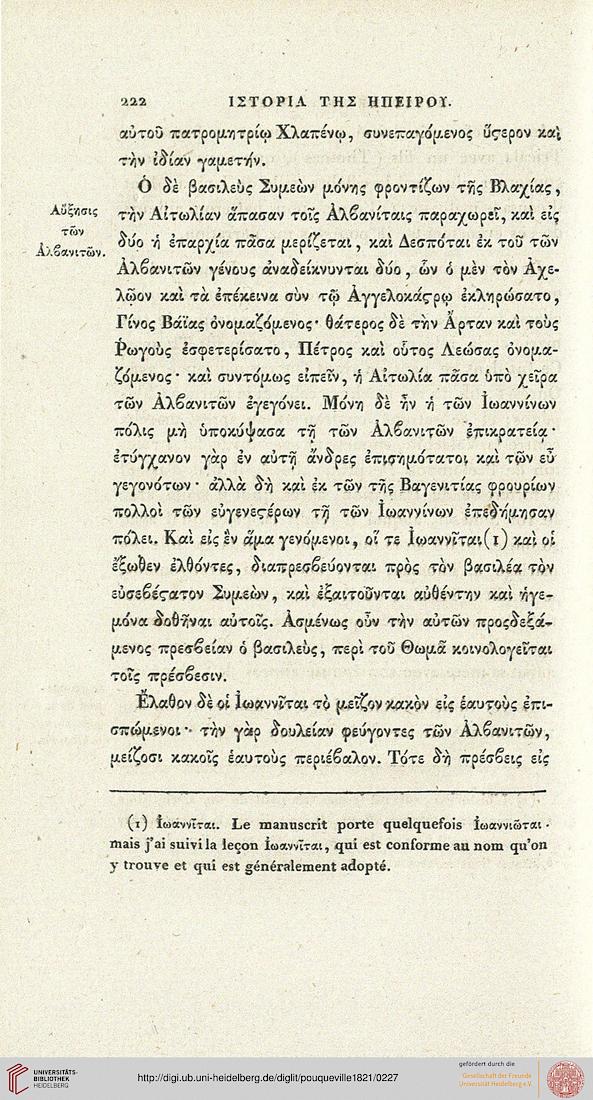 222 ΙΣΤΟΡΙΑ ΤΗΣ ΗΠΕΙΡΟΥ.
αὐτοῦ πατρομητρίῳ Χλαπένῳ, συνεπαγόμενος ὕϛερον καὶ
τὴν ἰδίαν γαμετήν.
Ὁ δὲ βασιλεὺς Συμεὼν μόνης φροντίζων τῆς Βλαχίας,
Αὔξησις
τῶν
Ἀλϐανιτῶν.
τὴν Αἰτωλίαν ἅπασαν τοῖς Ἀλϐανίταις παραχωρεῖ, καὶ εἰς
δύο ἡ ἐπαρχία πᾶσα μερίζεται, καὶ Δεσπόται ἐκ τοῦ τῶν
Ἀλϐανιτῶν γένους ἀναδείκνυνται δύο, ὧν ὁ μὲν τὸν Ἀχε-
λῶον καὶ τὰ ἐπέκεινα σὺν τῷ Ἀγγελοκάϛρῳ ἐκληρώσατο,
Γίνος Βάϊας ὀνομαζόμενος· θάτερος δὲ τὴν Ἄρταν καὶ τοὺς
Ῥωγοὺς ἐσφετερίσατο, Πέτρος καὶ οὗτος Λεώσας ὀνομα-
ζόμενος· καὶ συντόμως εἰπεῖν, ἡ Αἰτωλία πᾶσα ὑπὸ χεῖρα
τῶν Ἀλϐανιτῶν ἐγεγόνει. Μόνη δὲ ἦν ἡ τῶν Ἰωαννίνων
πόλις μὴ ὑποκύψασα τῇ τῶν Ἀλϐανιτῶν ἐπικρατείᾳ·
ἐτύγχανον γὰρ ἐν αὐτῇ ἄνδρες ἐπισημότατοι καὶ τῶν εὖ
γεγονότων· ἀλλὰ δὴ καὶ ἐκ τῶν τῆς Βαγενιτίας φρουρίων
πολλοὶ τῶν εὐγενεϛέρων τῇ τῶν Ἰωαννίνων ἐπεδήμησαν
πόλει. Καὶ εἰς ἓν ἅμα γενόμενοι, οἵ τε Ἰωαννῖται(1) καὶ οἱ
ἔξωθεν ἐλθόντες, διαπρεσϐεύονται πρὸς τὸν βασιλέα τὸν
εὐσεϐέϛατον Συμεὼν, καὶ ἐξαιτοῦνται αὐθέντην καὶ ἡγε-
μόνα δοθῆναι αὐτοῖς. Ἀσμένως οὖν τὴν αὐτῶν προςδεξά-
μενος πρεσϐείαν ὁ βασιλεὺς, περὶ τοῦ Θωμᾶ κοινολογεῖται
τοῖς πρέσϐεσιν.
Ἔλαθον δὲ οἱ Ἰωαννῖται τὸ μεῖζον κακὸν εἰς ἑαυτοὺς ἐπι-
σπώμενοι· τὴν γὰρ δουλείαν φεύγοντες τῶν Ἀλϐανιτῶν,
μείζοσι κακοῖς ἑαυτοὺς περιέϐαλον. Τότε δὴ πρέσϐεις εἰς
(1) Ἰωαννῖται. Le manuscrit porte quelquefois Ἰωαννιῶται·
mais j'ai suivi la leçon Ἰωαννῖται, qui est conforme au nom qu'on
y trouve et qui est généralement adopté.
UNIVERSITÄTS-
BIBLIOTHEK
HEIDELBERG
http://digi.ub.uni-heidelberg.de/diglit/pouqueville1821/0227
gefördert durch die
Gesellschaft der Freunde
Universität Heidelberg e.V.